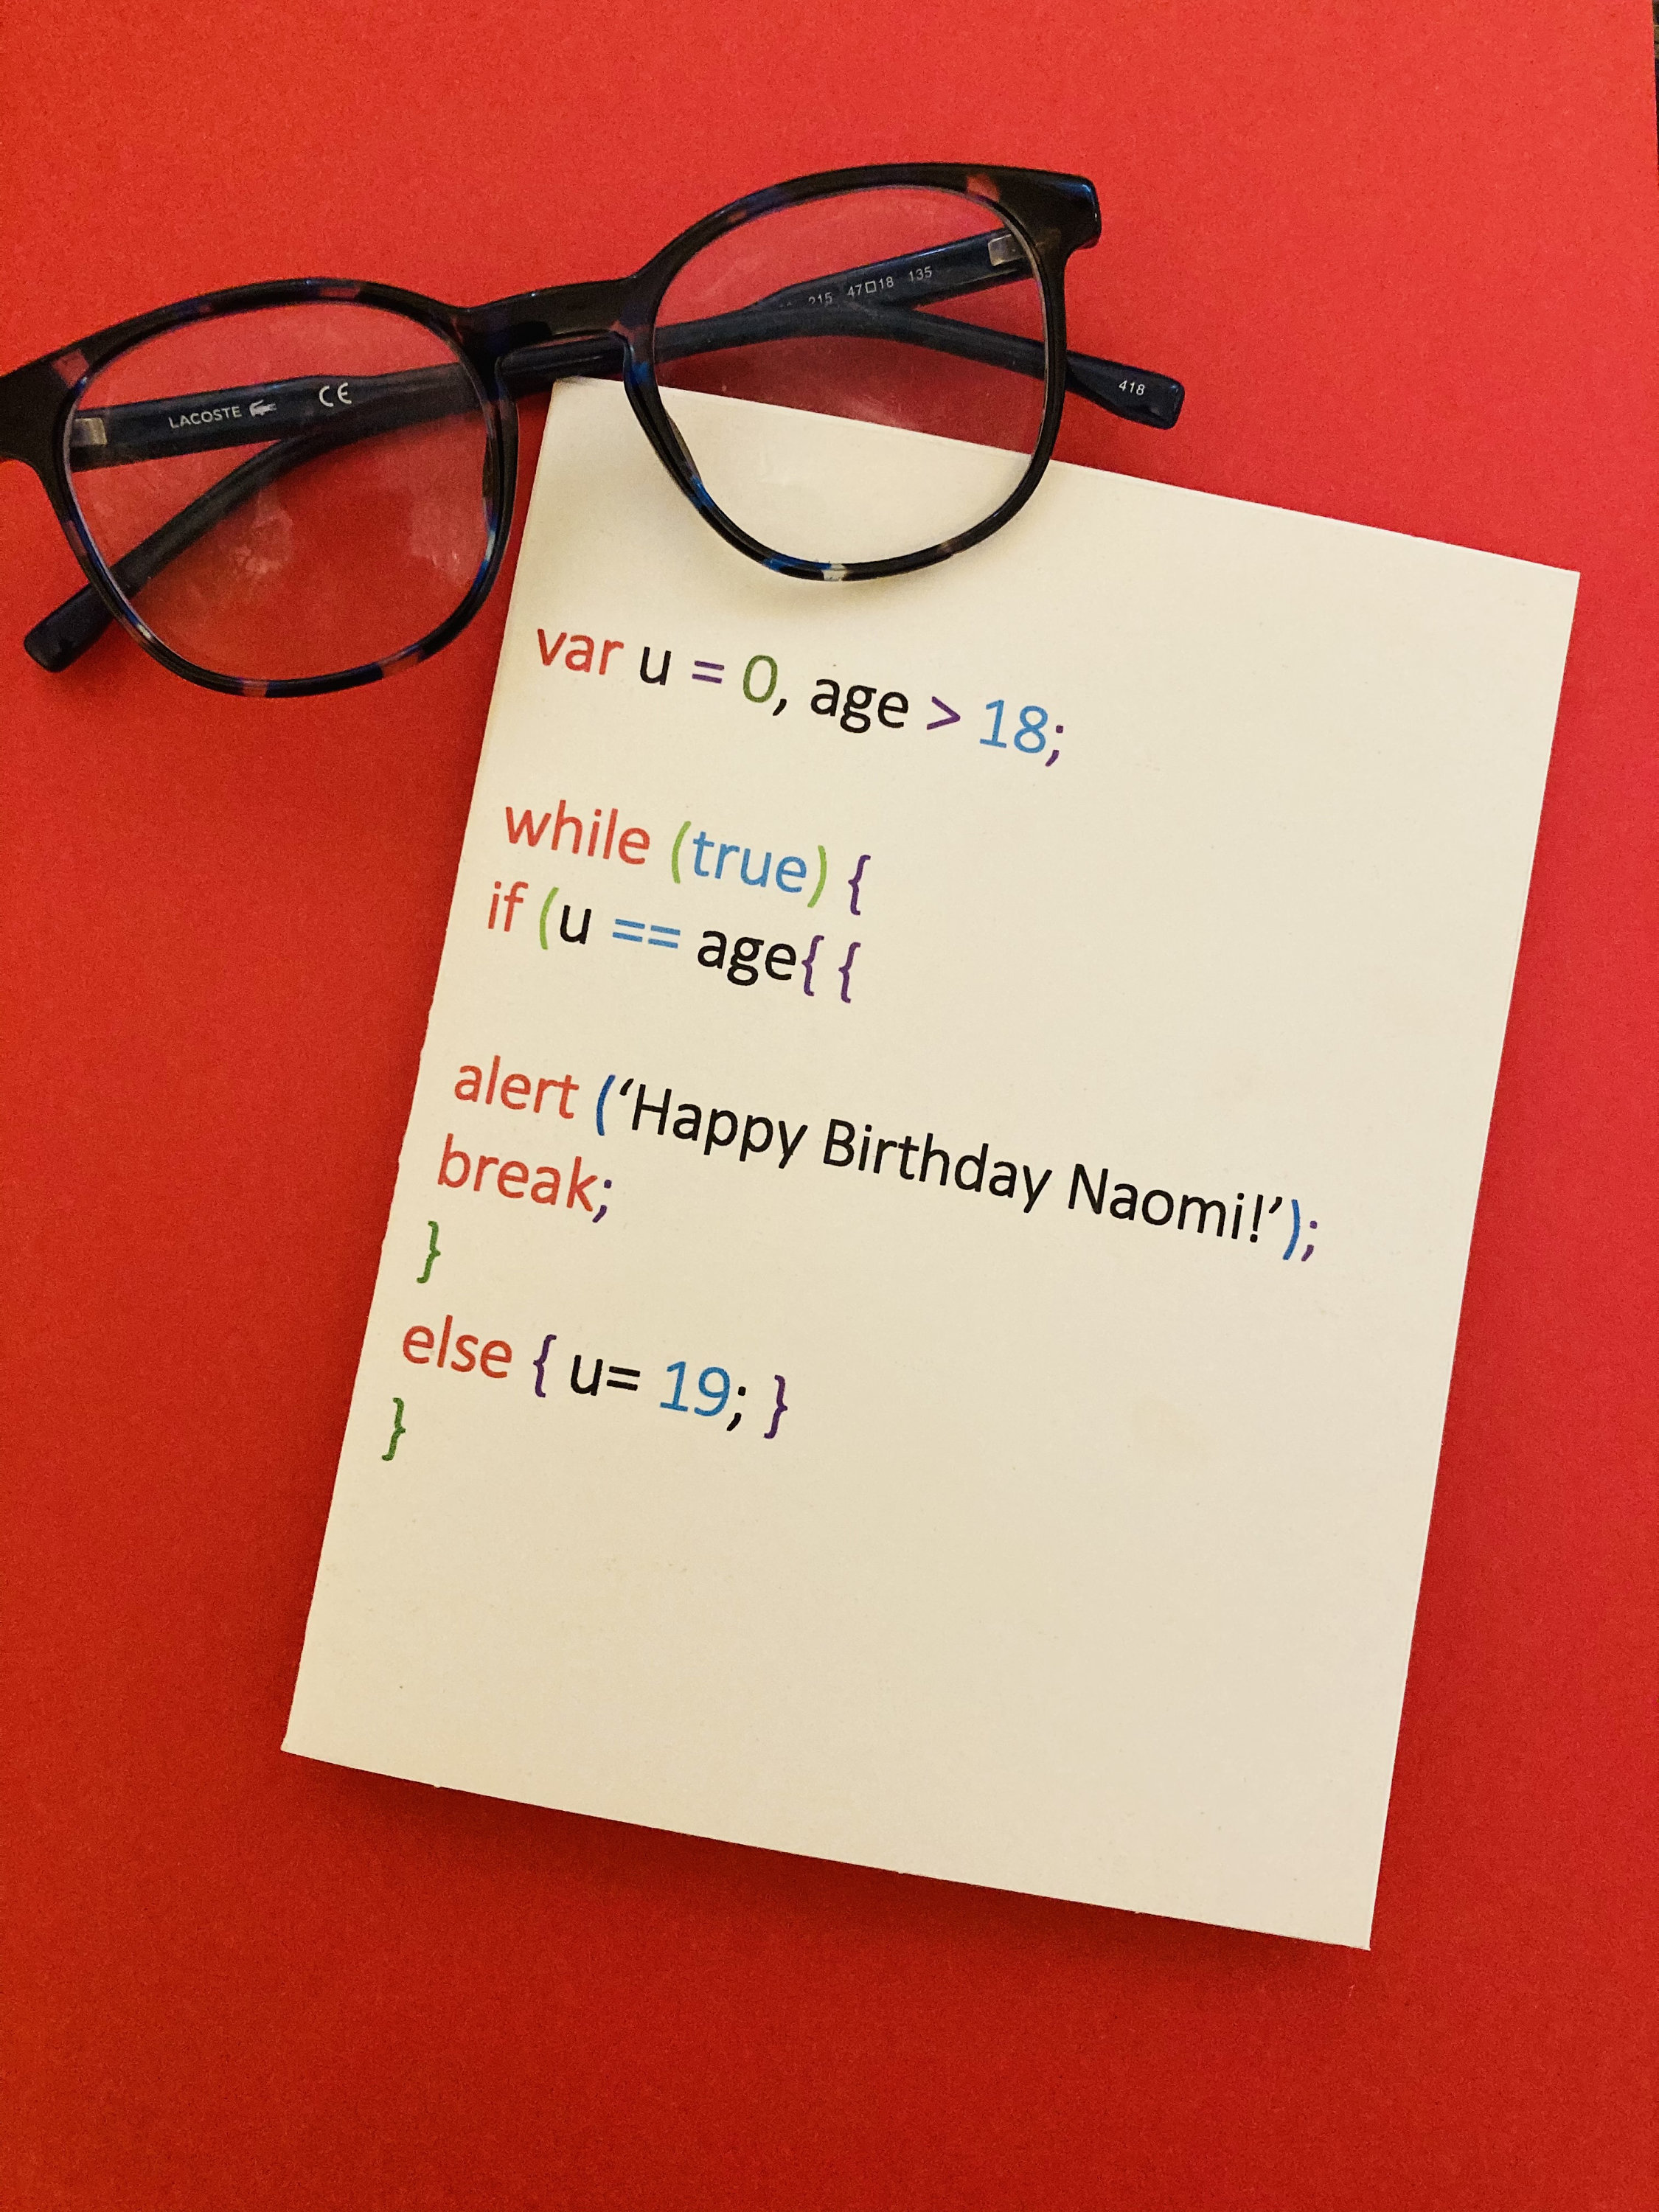 LACOSTE CE
215 47□18 135
418
var u = 0, age > 18;
while (true) {
if (u == age{ {
alert (‘Happy Birthday Naomi!’);
break;
}
else { u= 19; }
}